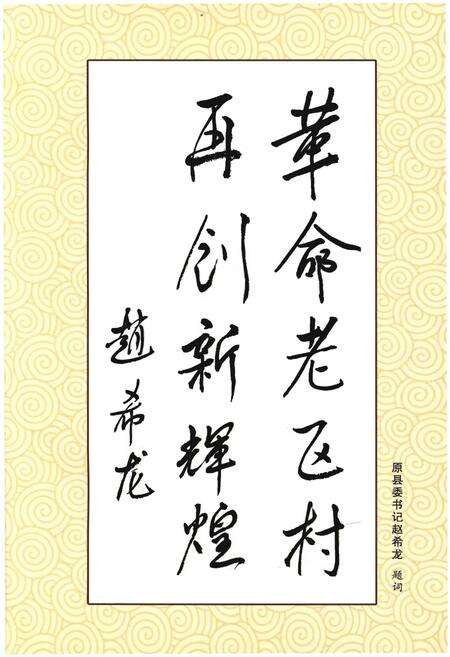 革命老区村
再创新辉煌
趙希龙
原县委书记赵希龙 题词